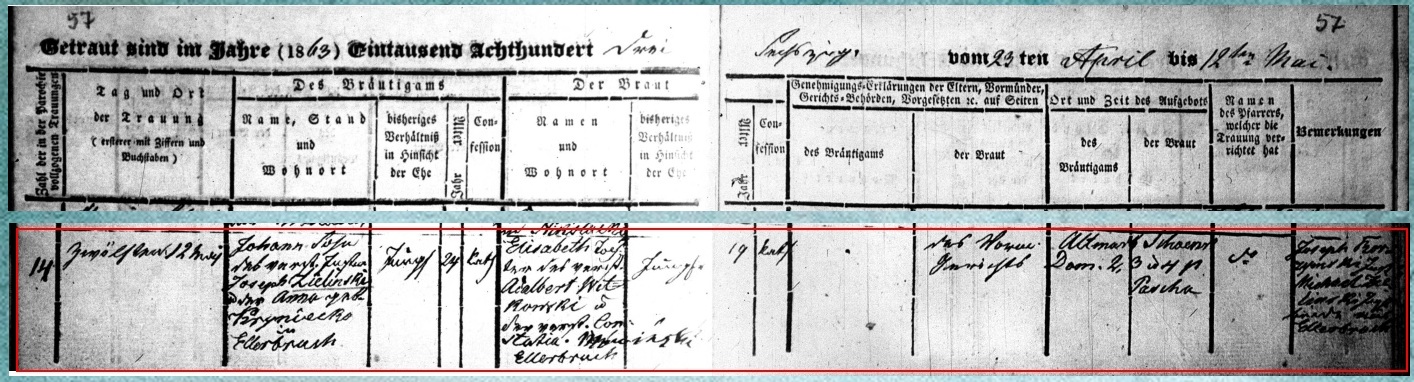 57
57
Getraut sind im Jahre (1863) Eintausend Achthundert Drei
Sechszig. vom 23 ten April bis 12ten Mai.
Zahl der in der Parochie vollzogenen Trauungen
Tag und Ort
der Trauung
(ersterer mit Ziffern und
Buchstaben)
Des Bräutigams
Name, Stand
und
Wohnort
bisheriges
Verhältniß
in Hinsicht
der Ehe
Jahr Alter
Con-
fession
Der Braut
Namen
und
Wohnort
bisheriges
Verhältniß
in Hinsicht
der Ehe
Jahr Alter
Con-
fession
Genehmigungs-Erklärungen der Eltern, Vormünder,
Gerichts-Behörden, Vorgesetzten ꝛc. auf Seiten
des Bräutigams
der Braut
Ort und Zeit des Aufgebots
des
Bräutigams
der Braut
Namen
des Pfarrers,
welcher die
Trauung ver-
richtet hat
Bemerkungen
14
zwölften 12 Mai
Johann
des verst.
Joseph Zielinski
u der Anna geb
in
Ellerbruch
Jungf
24
kath
Elisabeth Toch
ter des verst.
Adalbert Wit
kowski u
der verst. Con
statia
Ellerbruch
Jungfr
19
kath
des Vorm.
Gerichts
Altmark
Dom. 2,
Schoenw
3 u 4 p
Pascha
Joseph
Michael Zie
linski
Ellerbruch